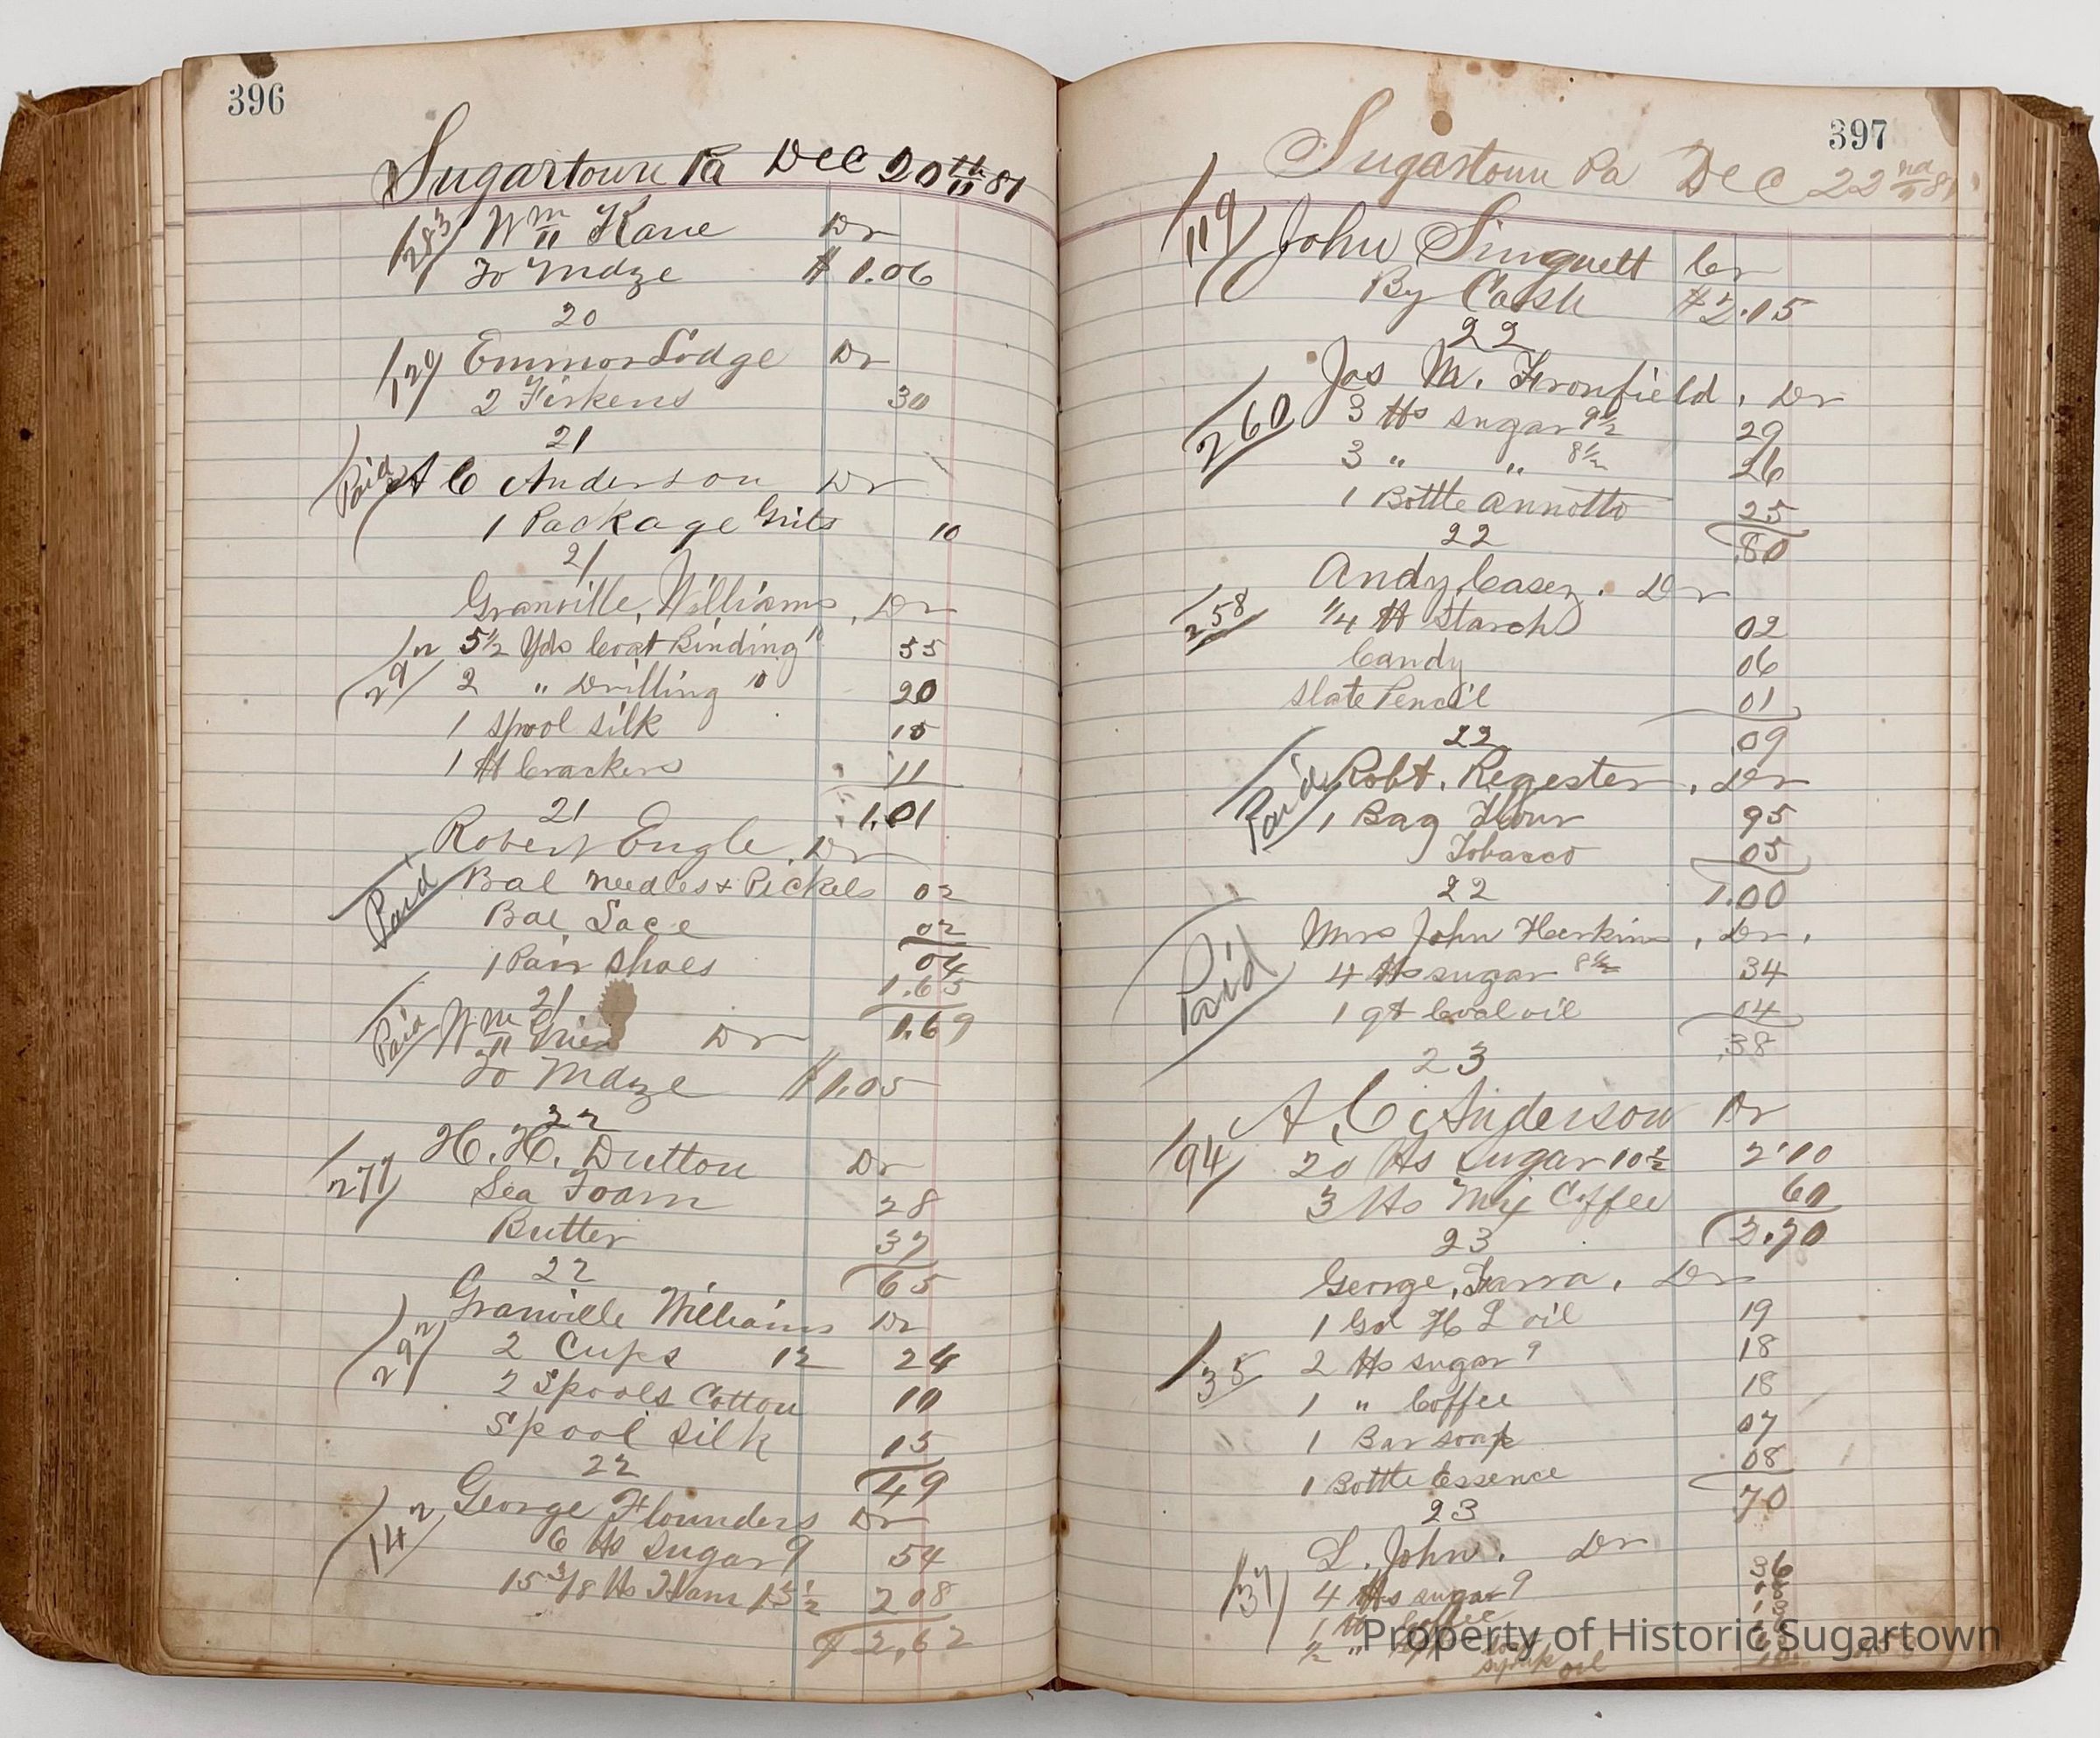 396
Sugartown Pa Dec 20th 81
283 Wm Kane Dr
To Mdze $1.06
20
129 Emmor Lodge Dr
2 Firkens 30
21
Paid A C Anderson Dr
1 Package Grits 10
21
Granville Williams, Dr
5 1/2 Yds Coat Binding 10 55
29 2 " Drilling 10 20
1 Spool Silk 15
1 lb Crackers 11
1.01
21
Robert Engle, Dr
Paid Bal Needles & Pickels 02
Bal Lace 02
04
1 Pair Shoes 1.65
21 1.69
Paid Wm Dr
To Mdze $1.05
22
H. H. Dutton Dr
277 Sea Foam 28
Butter 37
22 65
Granville Williams Dr
29 2 Cups 12 24
2 Spools Cotton 10
Spool Silk 15
22 49
George Flounders Dr
14 6 lbs Sugar 9 54
15 3/8 lbs Ham 13 1/2 2 08
$2,62
397
Sugartown Pa Dec 22nd 81
119 John Singuett Cr
By Cash $2.15
22
Jas M. Fronfield, Dr
260 3 lbs sugar 9 1/2 29
3 " " 8 1/2 26
1 Bottle Annotto 25
22 .80
Andy Casey. Dr
258 1/4 lb Starch 02
Candy 06
Slate Pencil 01
22 .09
Paid Robt. Regester, Dr
1 Bag Flour 95
Tobacco 05
22 1.00
Paid Mrs John Harkins, Dr.
4 lbs sugar 8 1/2 34
1 qt Coal oil 04
23 .38
A. C. Anderson Dr
194 20 lbs Sugar 10 1/2 2.10
3 lbs Mix Coffee 60
23 2.70
George, Farra, Dr
1 Gal H L oil 19
35 2 lbs sugar 9 18
1 " Coffee 18
1 Bar soap 07
1 Bottle Essence 08
23 70
L. John. Dr
37 4 lbs sugar 9 36
1 lb Coffee
1/2 "
oil
Property of Historic Sugartown